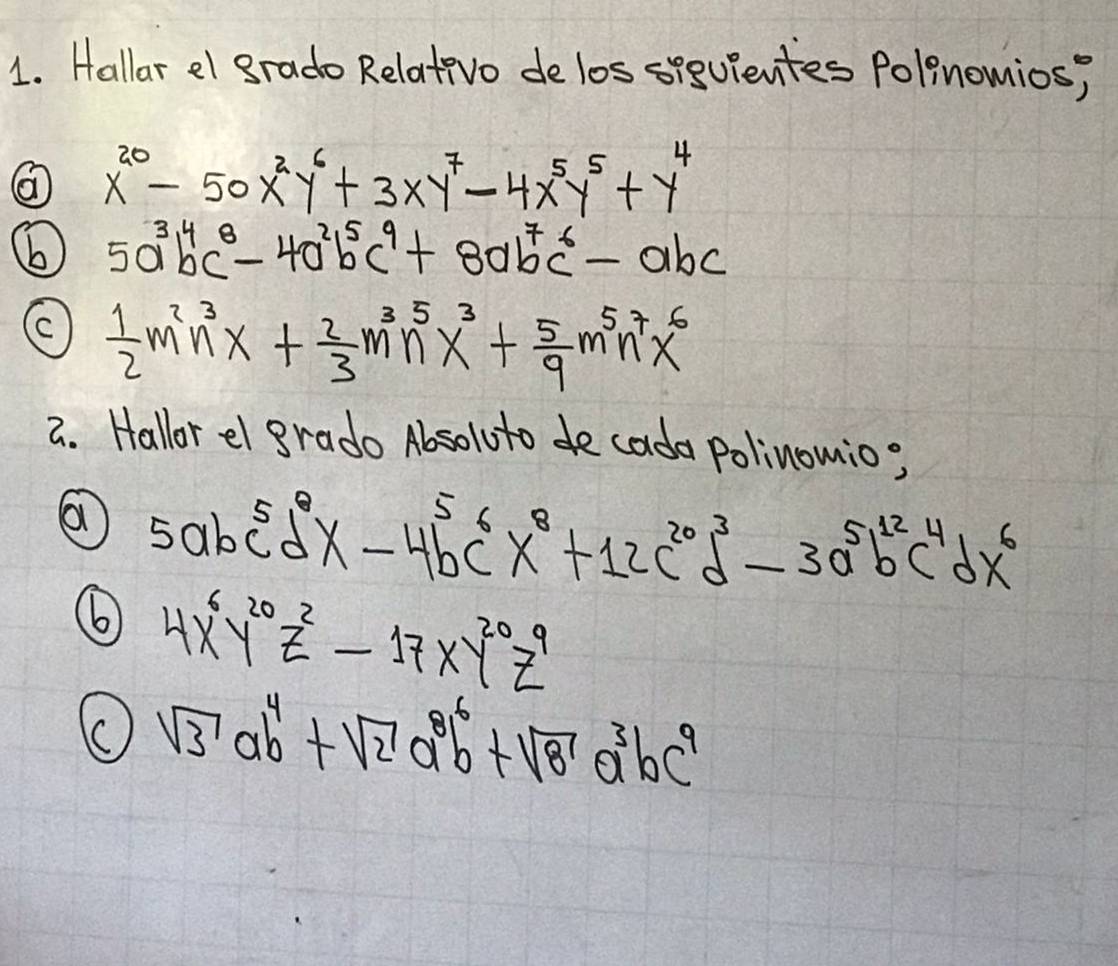 1. Hallar el grado Relativo de los siguientes Polinomios;
ⓐ x²⁰ − 50x²y⁶ + 3xy⁷ − 4x⁵y⁵ + y⁴
ⓑ 5a³b⁴c⁸ − 4a²b⁵c⁹ + 8ab⁷c⁶ − abc
ⓒ 1/2 m²n³x + 2/3 m³n⁵x³ + 5/9 m⁵n⁷x⁶
2. Hallar el grado Absoluto de cada polinomio;
ⓐ 5abc⁵d⁸x − 4b⁵c⁶x⁸ + 12c²⁰d³ − 3a⁵b¹²c⁴dx⁶
ⓑ 4x⁶y²⁰z² − 17xy²⁰z⁹
ⓒ √3 ab⁴ + √2 a⁸b⁶ + √8 a³bc⁹